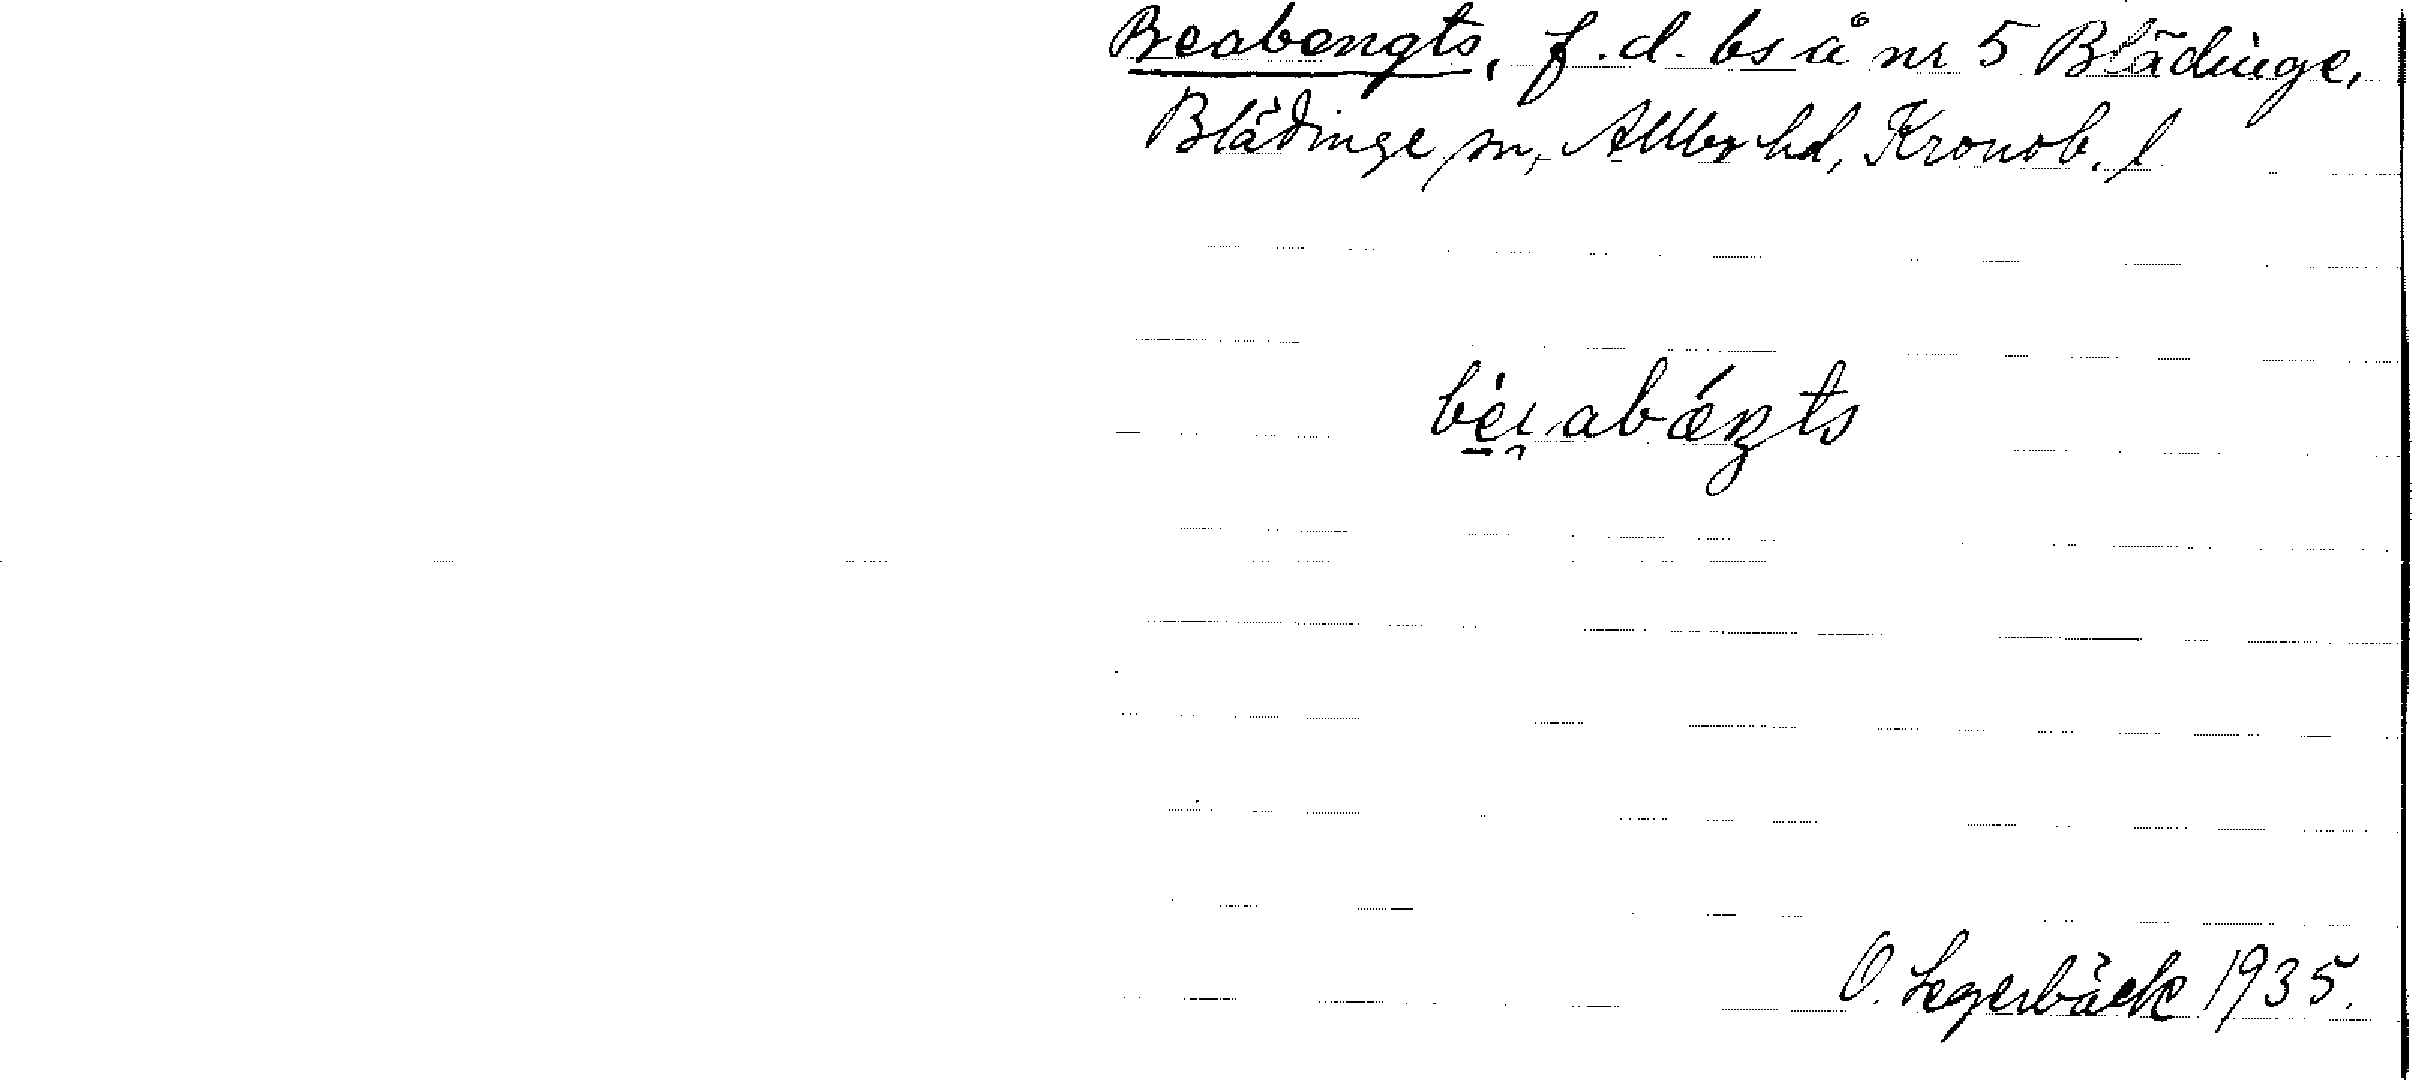 Beabengts, f.d. bs å nr 5 Blädinge,
Blädinge sn, Allbo hd, Kronob. l
O. Legerbäck 1935.